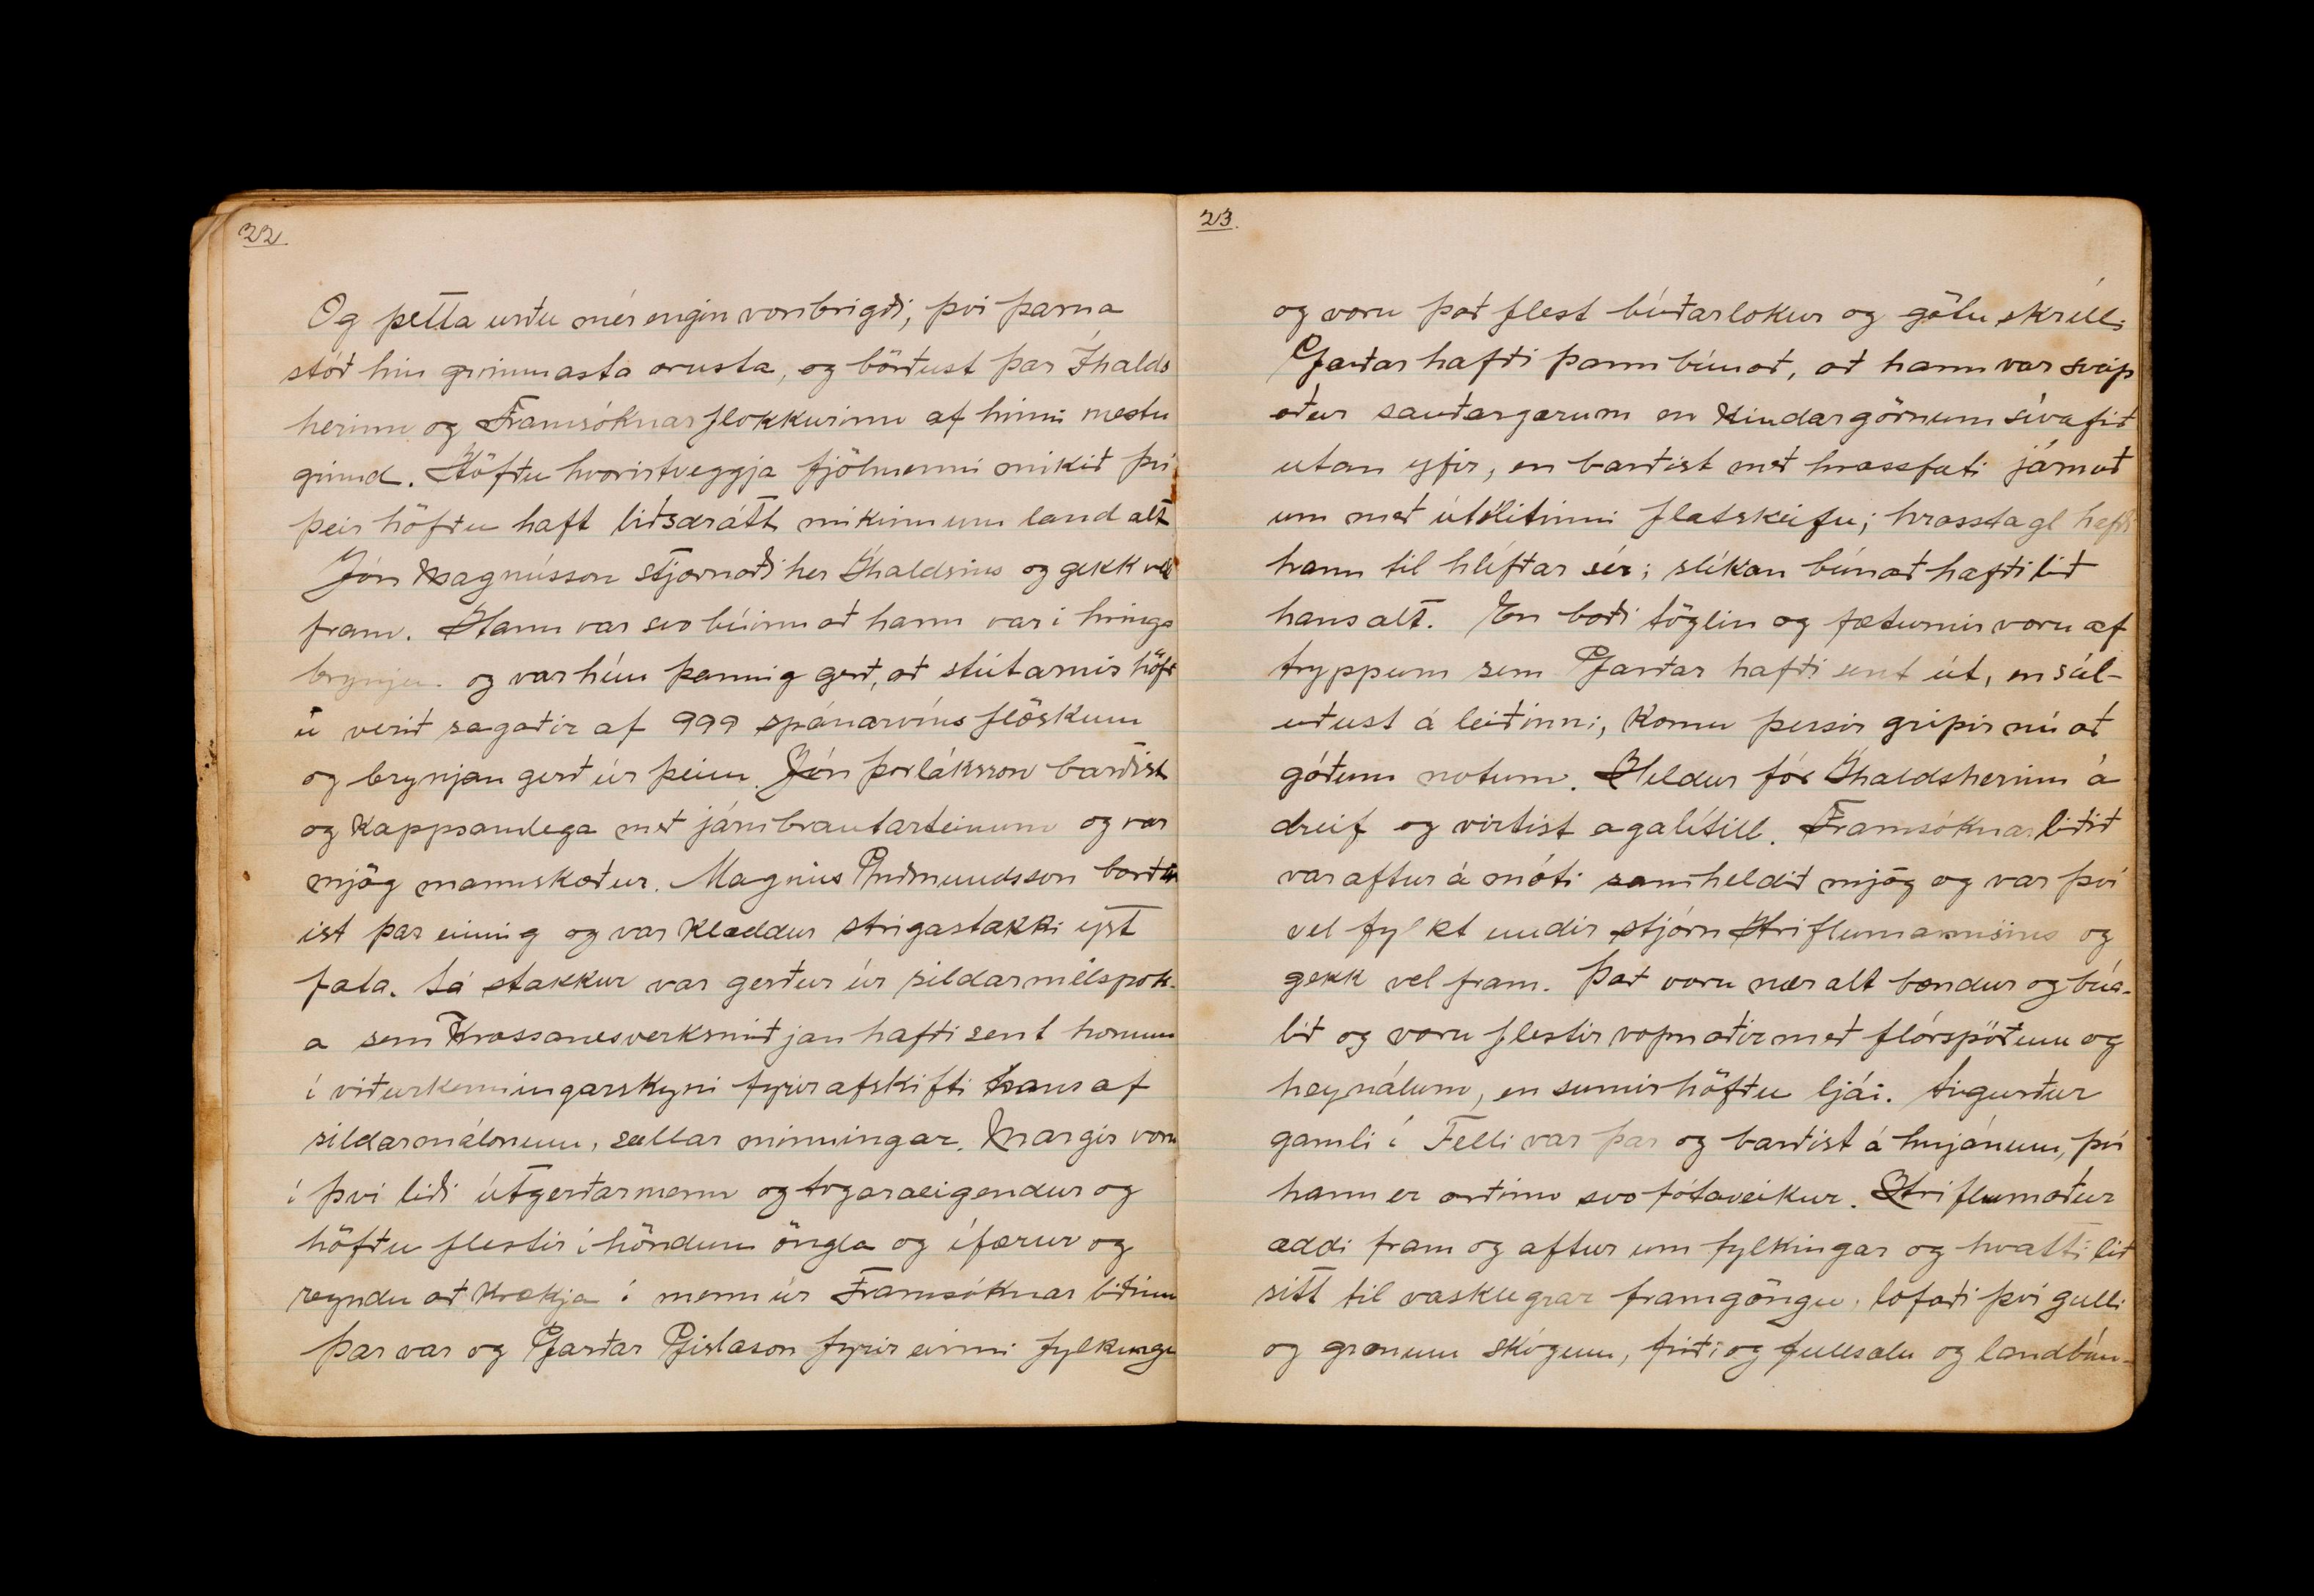 22.
Og þetta urðu mér engin vonbrigði, því þarna
stóð hin grimmasta orusta, og börðust þar Íhalds
herinn og Framsóknarflokkurinn af hinni mestu
grimd. Höfðu hvorirtveggja fjölmenni mikið því
þeir höfðu haft liðsdrátt mikinn um land alt
Jón Magnússon stjórnaði her Íhaldsins og gekk vel
fram. Hann var svo búinn að hann var í hringa
brynju og var hún þannig gerð, að stútarnir höfð
u verið sagaðir af 999 spánarvíns flöskum
og brynjan gerð úr þeim. Jón Þorláksson barðist
og kappsamlega með járnbrautarteinum og var
mjög mannskæður. Magnús Guðmundsson barð
ist þar einnig og var klæddur strigastakki yst
fata. Sá stakkur var gerður úr síldarmélspok-
a sem Krossanesverksmiðjan hafði sent honum
í viðurkenningarskyni fyrir afskifti hans af
síldarmálonum, sællar minningar. Margir voru
í því liði útgerðarmenn og togaraeigendur og
höfðu flestir í höndum öngla og ífærur og
reyndu að krækja í menn úr Framsóknar liðinu
Þar var og Garðar Gíslason fyrir einni fylkingu
23.
og voru það flest búðarlokur og götu skríll;
Garðar hafði þann búnað, að hann var sveip
aður sauðargærum en kindargörnum sívafið
utan yfir, en barðist með hrossfæti járnuð
um með útslitinni flatskeifu; hrosstagl hafði
hann til hlífðar sér; slíkan búnað hafði lið
hans alt. En bæði töglin og fæturnir voru af
tryppum sem Garðar hafði sent út, en sál-
uðust á leiðinni, komu þessir gripir nú að
góðum notum. Heldur fór Íhaldsherinn á
dreif og virtist agalítill. Framsóknarliðið
var aftur á móti samheldið mjög og var því
vel fylkt undir stjórn Hriflumannsins og
gekk vel fram. Það voru nær alt bændur og búa-
lið og voru flestir vopnaðir með flórspöðum og
heynálum, en sumir höfðu ljái. Sigurður
gamli í Felli var þar og barðist á hnjánum, því
hann er orðinn svo fótaveikur. Hriflumaður
æddi fram og aftur um fylkingar og hvatti lið
sitt til vasklegrar framgöngu, lofaði því gulli
og grænum skógum, friði og fullsælu og landbún-